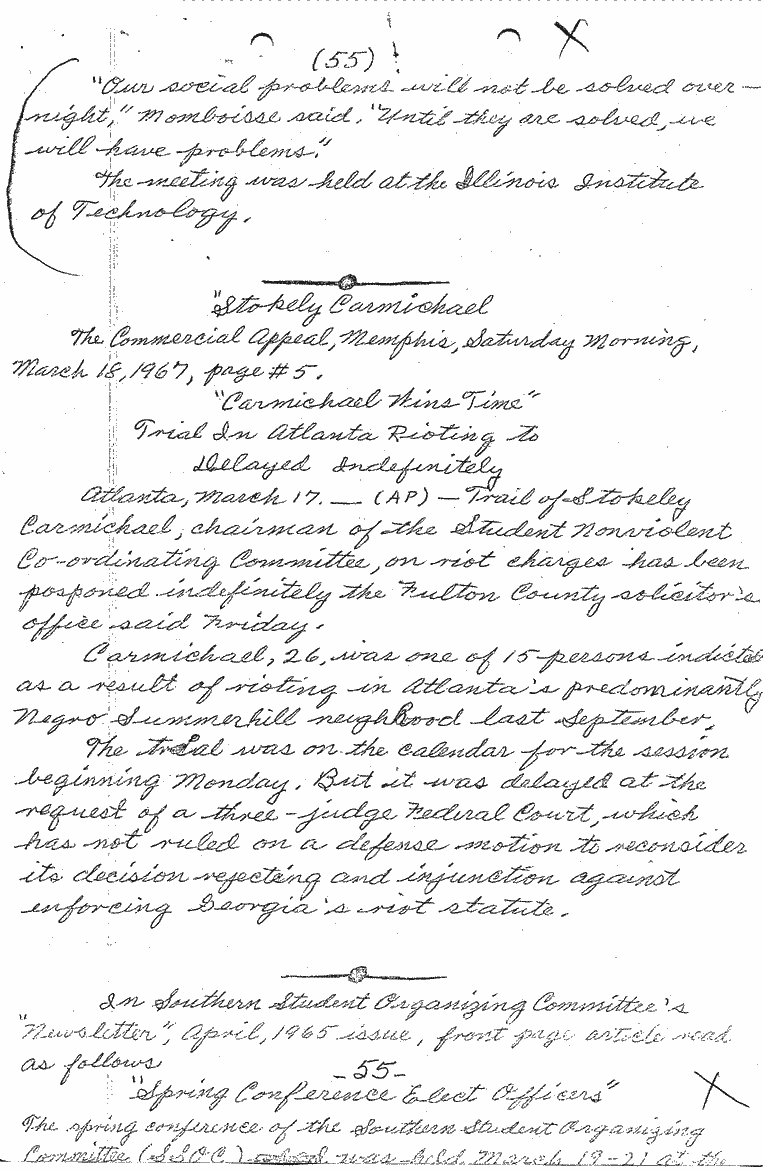 (55)
"Our social problems will not be solved over-
night," Momboisse said. "Until they are solved, we
will have problems."
The meeting was held at the Illinois Institute
of Technology.
"Stokely Carmichael
The Commercial Appeal, Memphis, Saturday Morning,
March 18, 1967, page #5.
"Carmichael Wins Time"
Trial In Atlanta Rioting to
Delayed Indefinitely
Atlanta, March 17. — (AP) — Trail of Stokeley
Carmichael, chairman of the Student Nonviolent
Co-ordinating Committee, on riot charges has been
posponed indefinitely the Fulton County solicitor's
office said Friday.
Carmichael, 26, was one of 15 persons indicted
as a result of rioting in Atlanta's predominantly
Negro Summerhill neighhood last September,
The trial was on the calendar for the session
beginning Monday. But it was delayed at the
request of a three-judge Federal Court, which
has not ruled on a defense motion to reconsider
its decision rejecting and injunction against
enforcing Georgia's riot statute.
In Southern Student Organizing Committee's
"Newsletter", April, 1965 issue, front page article read
as follows
-55-
"Spring Conference Elect Officers"
The spring conference of the Southern Student Organizing
Committee (SSOC) was held March 19-21 at the